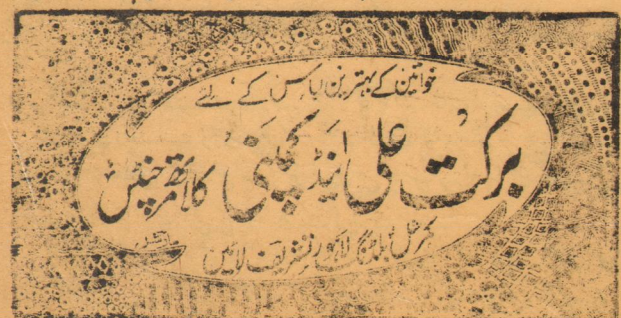 خواتین کے بہترین لباس کے لئے
برکت علی اینڈ کمپنی کلاتھ مرچنٹس
بلڈنگ لاہور تشریف لائیں